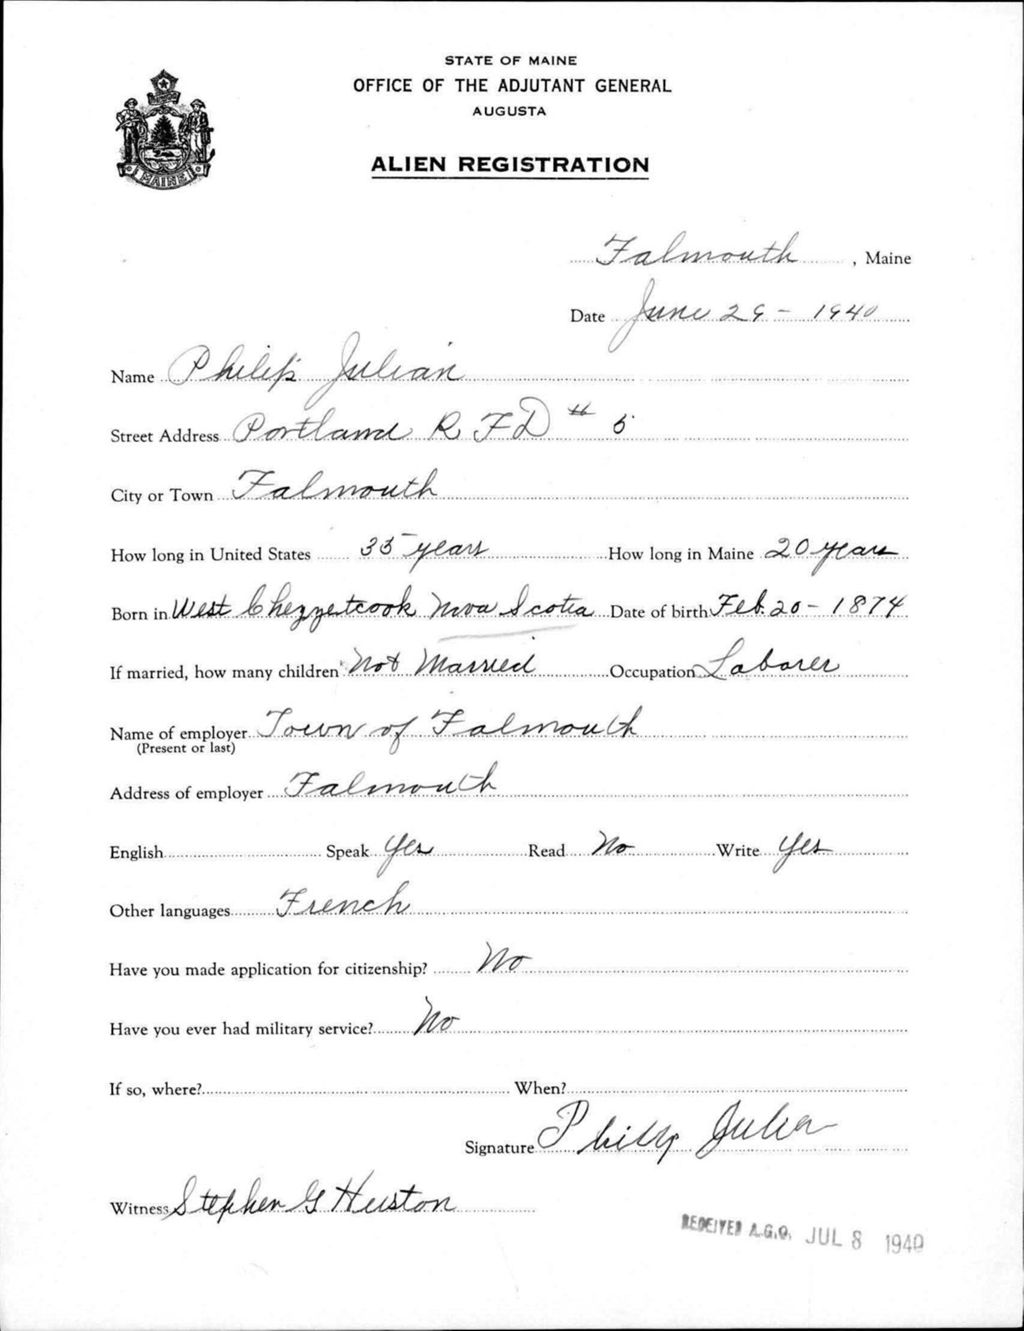 STATE OF MAINE
OFFICE OF THE ADJUTANT GENERAL
AUGUSTA
ALIEN REGISTRATION
MAINE
Falmouth, Maine
Date June 29 - 1940
Name Philip Julian
Street Address Portland R F D # 5
City or Town Falmouth
How long in United States 35 years How long in Maine 20 years
Born in West Chezzetcook Nova Scotia Date of birth Feb. 20 - 1874
If married, how many children Not Married Occupation Laborer
Name of employer Town of Falmouth
(Present or last)
Address of employer Falmouth
English Speak Yes Read No Write Yes
Other languages French
Have you made application for citizenship? No
Have you ever had military service? No
If so, where? When?
Signature Philip Julian
Witness Stephen G Huston
RECEIVED A.G.O. JUL 8 1940